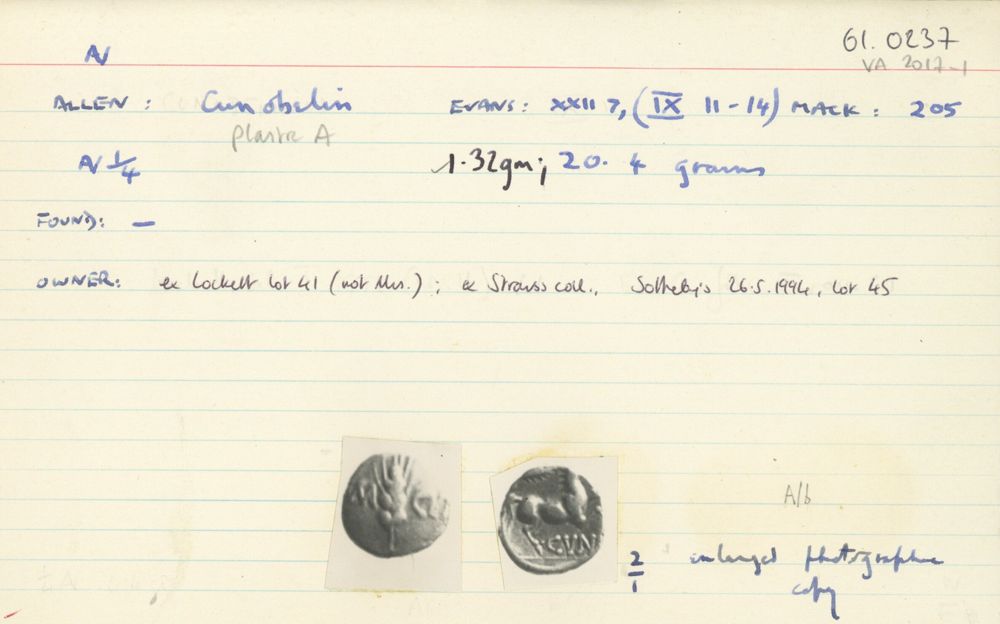 AV
61.0237
VA 2017-1
ALLEN : Cunobelin EVANS: XXII 7, (IX 11-14) MACK: 205
plastic A
AV 1/4 1.32gm; 20.4 grams
FOUND: —
OWNER: ex Lockett lot 41 (not illus.); ex Strauss coll., Sotheby's 26.5.1994, lot 45
CUN
A/b
2/1 enlarged photographic
copy